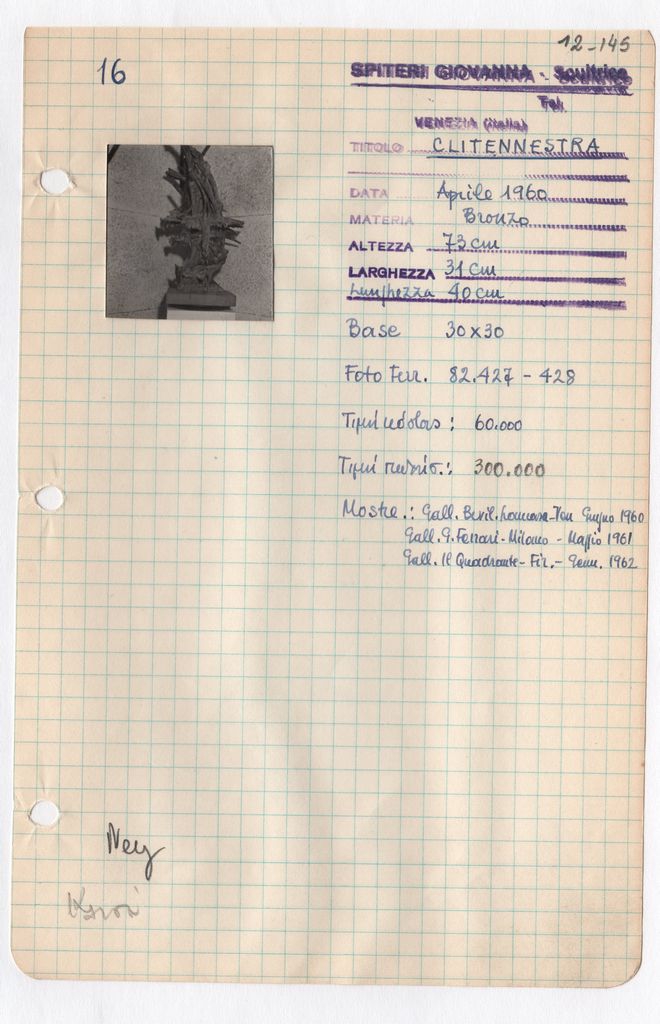 12-145
16
SPITERI GIOVANNA - Scultrice
Tel.
VENEZIA (Italia)
TITOLO CLITENNESTRA
DATA Aprile 1960
MATERIA Bronzo
ALTEZZA 73 cm
LARGHEZZA 31 cm
Lunghezza 40 cm
Base 30x30
Foto Ferr. 82.427 - 428
: 60.000
: 300.000
Mostre.: Gall. Bevil. Giugno 1960
Gall. G. Ferrari - Milano - Maggio 1961
Gall. Il Quadrante - Fir. - Genn. 1962
Ney